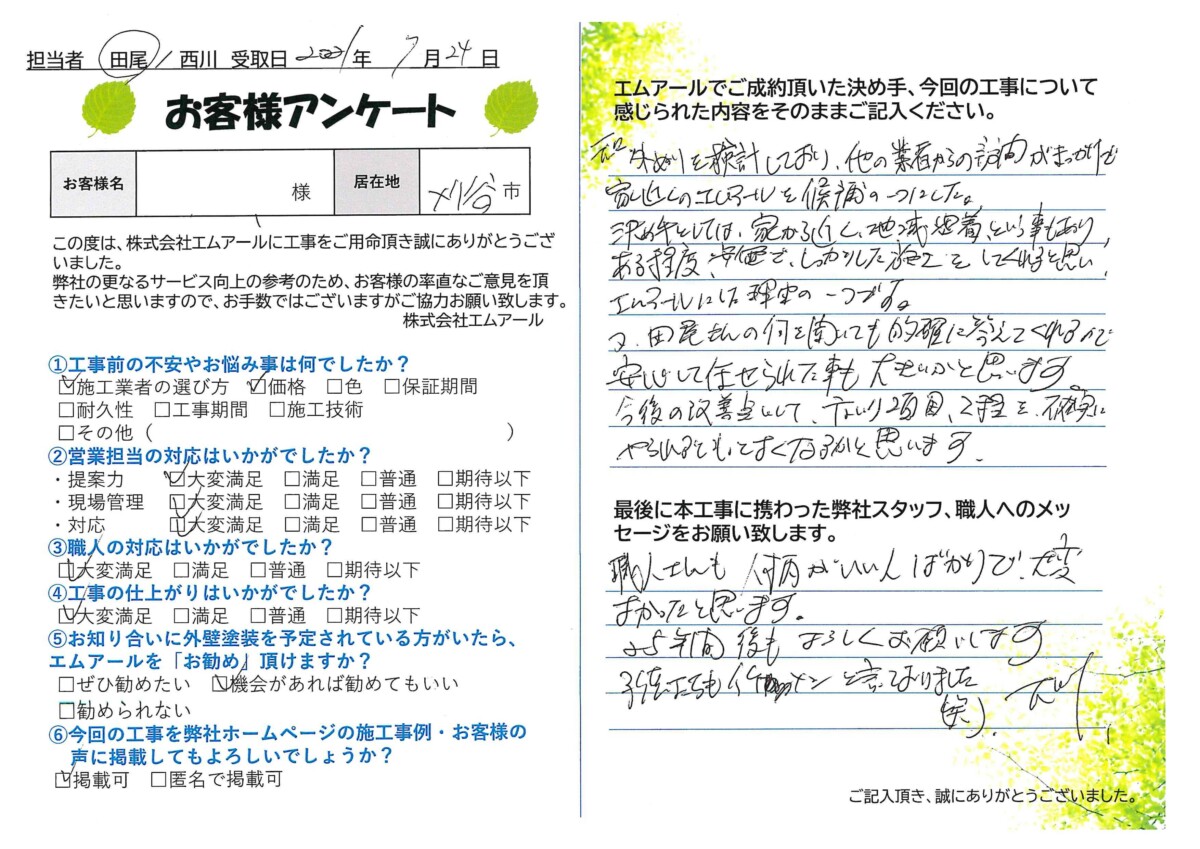 担当者 田尾 / 西川 受取日 2021年 7月24日
お客様アンケート
お客様名 様 居在地 刈谷市
この度は、株式会社エムアールに工事をご用命頂き誠にありがとうござ
いました。
弊社の更なるサービス向上の参考のため、お客様の率直なご意見を頂
きたいと思いますので、お手数ではございますがご協力お願い致します。
株式会社エムアール
①工事前の不安やお悩み事は何でしたか？
☑施工業者の選び方 ☑価格 □色 □保証期間
□耐久性 □工事期間 □施工技術
□その他（ ）
②営業担当の対応はいかがでしたか？
・提案力 ☑大変満足 □満足 □普通 □期待以下
・現場管理 ☑大変満足 □満足 □普通 □期待以下
・対応 ☑大変満足 □満足 □普通 □期待以下
③職人の対応はいかがでしたか？
☑大変満足 □満足 □普通 □期待以下
④工事の仕上がりはいかがでしたか？
☑大変満足 □満足 □普通 □期待以下
⑤お知り合いに外壁塗装を予定されている方がいたら、
エムアールを「お勧め」頂けますか？
□ぜひ勧めたい ☑機会があれば勧めてもいい
□勧められない
⑥今回の工事を弊社ホームページの施工事例・お客様の
声に掲載してもよろしいでしょうか？
☑掲載可 □匿名で掲載可
エムアールでご成約頂いた決め手、今回の工事について
感じられた内容をそのままご記入ください。
を検討しており、他の業者からの訪問がきっかけで
家近くのエムアールを候補の一つにした。
決め手としては、家から近く、地域密着という事もあり、
ある程度、安価で、しっかりした施工をしてくれると思い、
エムアールにした理由の一つです。
又、田尾さんの何を聞いても的確に答えてくれるので
安心して任せられた事も大きいかと思います。
今後の改善点として、 工程を、確実に
やられるともっとよくなるかと思います。
最後に本工事に携わった弊社スタッフ、職人へのメッ
セージをお願い致します。
職人さんも人柄がいい人ばかりで、大変
よかったと思います。
年間後もよろしくお願いします
子供たちもイケメンと言っておりました
(笑)
ご記入頂き、誠にありがとうございました。